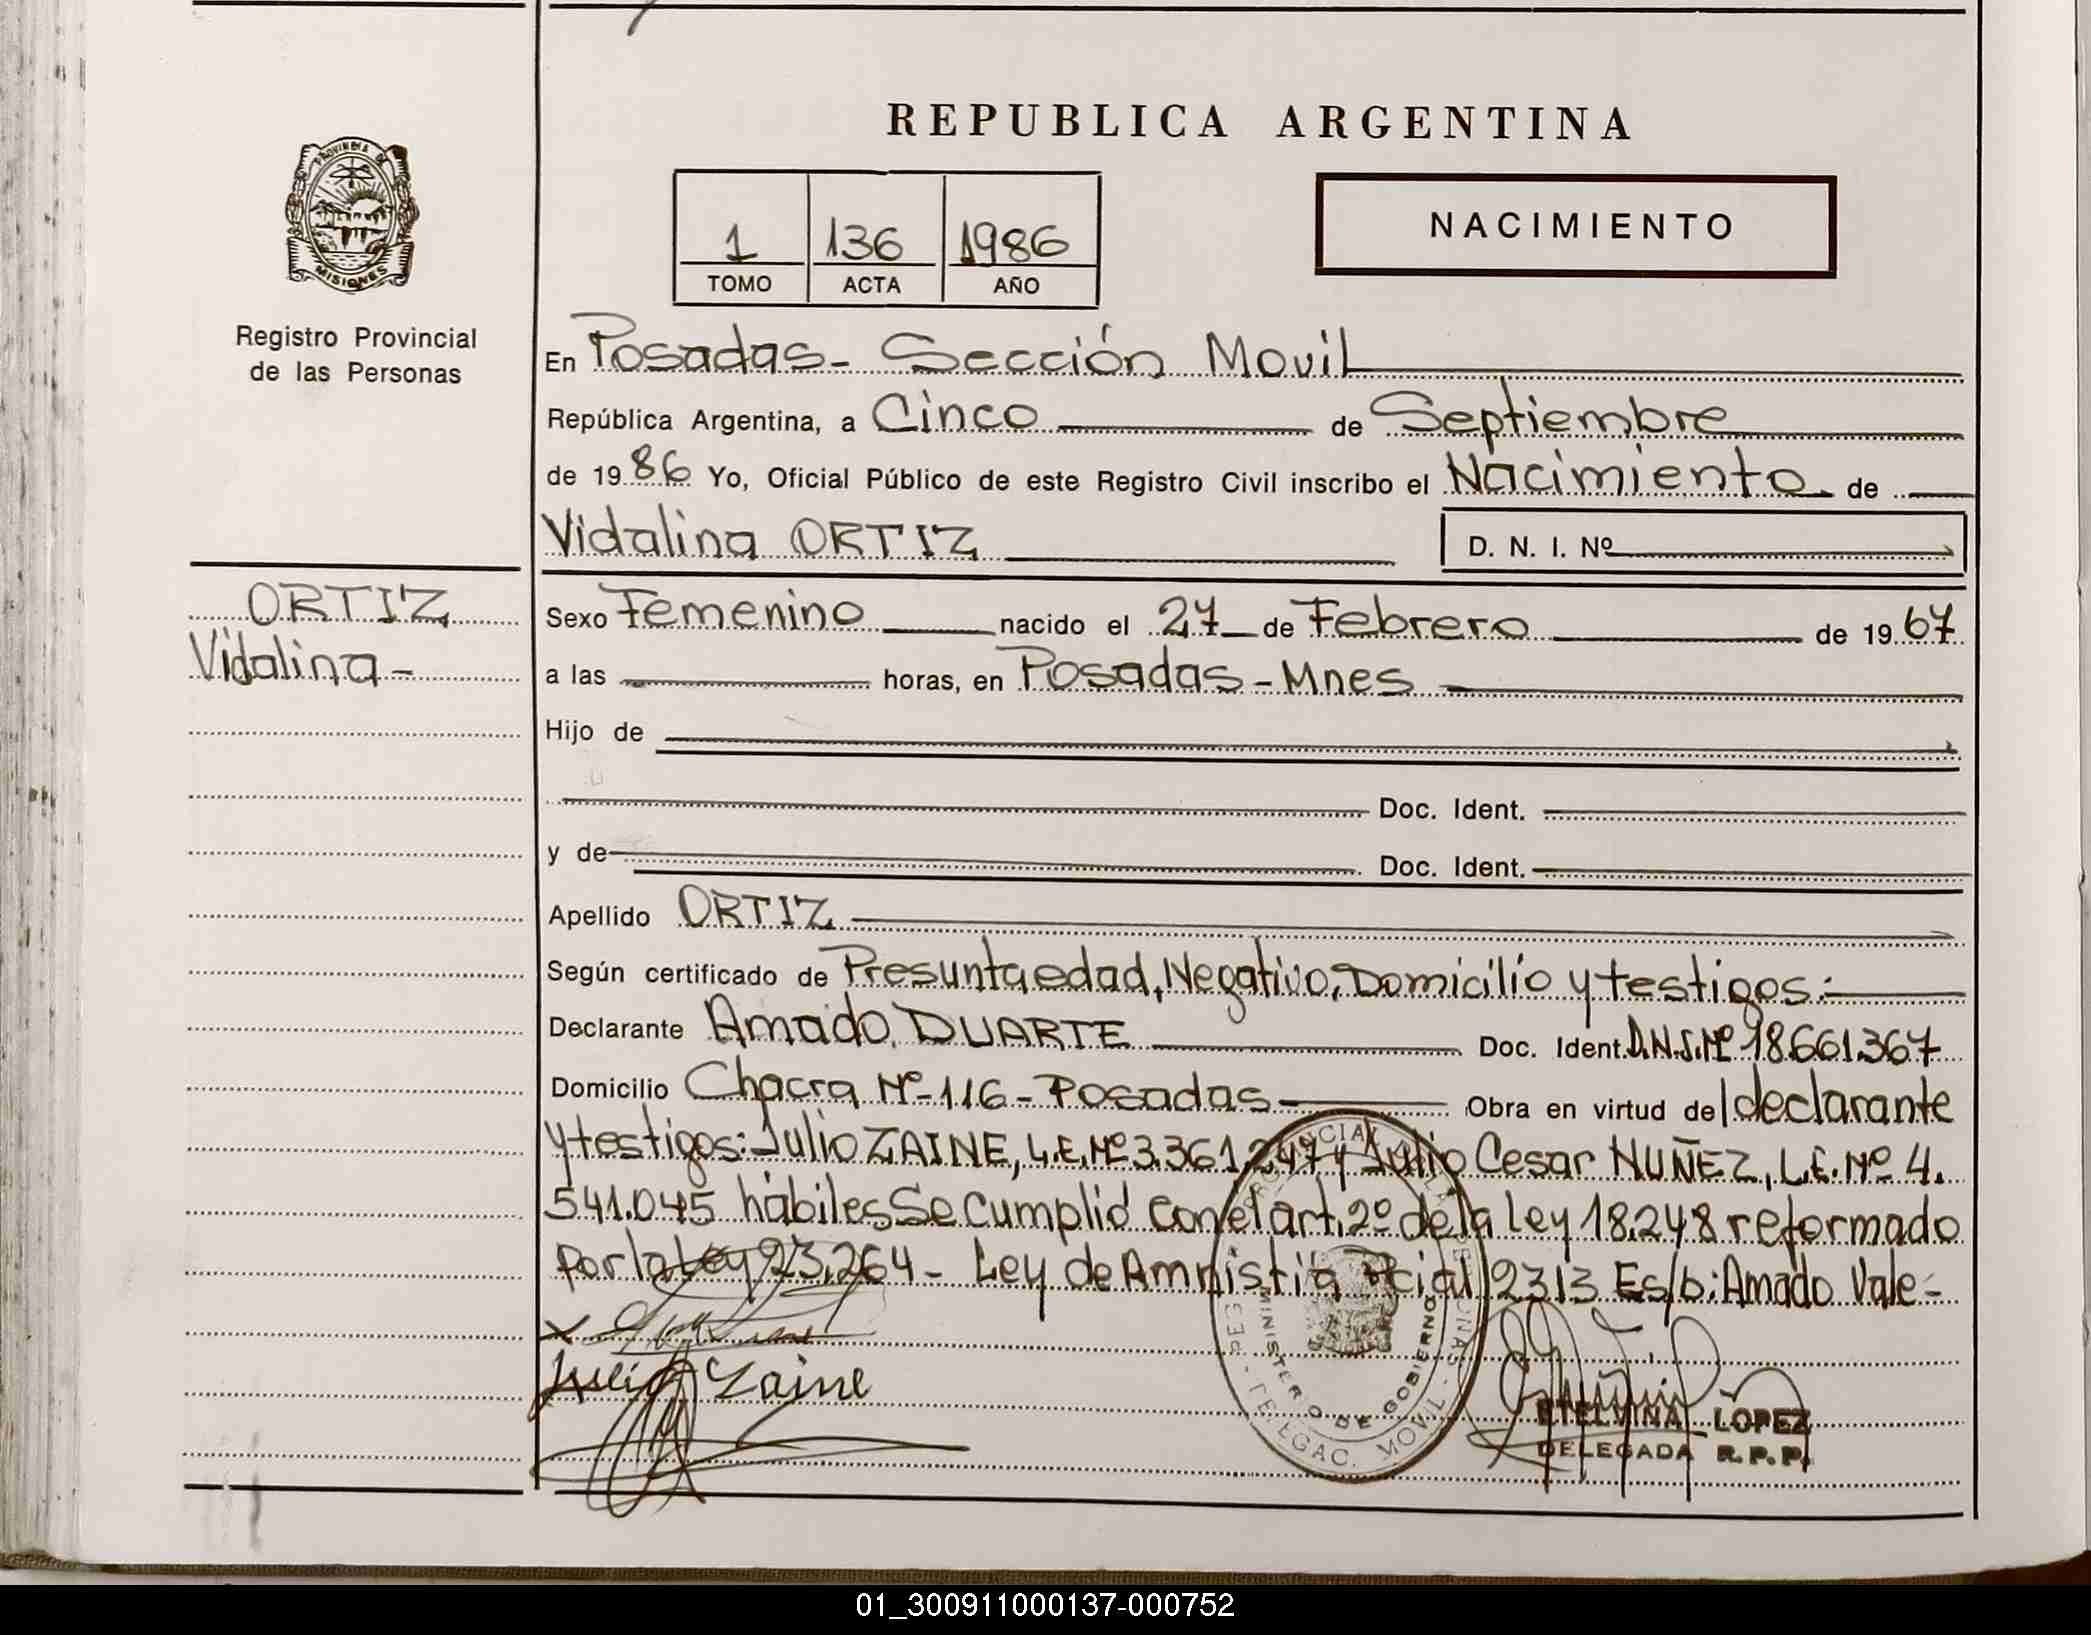 REPUBLICA ARGENTINA
PROVINCIA DE MISIONES
Registro Provincial
de las Personas
1 136 1986
TOMO ACTA AÑO
NACIMIENTO
En Posadas- Sección Movil
República Argentina, a Cinco de Septiembre
de 1986 Yo, Oficial Público de este Registro Civil inscribo el Nacimiento de
Vidalina ORTIZ D. N. I. Nº
ORTIZ
Vidalina-
Sexo Femenino nacido el 27 de Febrero de 1967
a las horas, en Posadas-Mnes
Hijo de
Doc. Ident.
y de Doc. Ident.
Apellido ORTIZ
Según certificado de Presunta edad, Negativo, Domicilio y testigos:
Declarante Amado DUARTE Doc. Ident. D.N.I.Nº 18.661.367
Domicilio Chacra Nº-116-Posadas Obra en virtud del declarante
y testigos: Julio ZAINE, L.E.Nº 3.361.247 y Julio Cesar NUÑEZ, L.E. Nº 4.
541.045 hàbiles Se Cumplió con el art. 2º de la Ley 18.248 reformado
por la Ley 23.264- Ley de Amnistía 2313 Es/b: Amado Vale-
Julio Zaine
MINISTERIO DE GOBIERNO
DELEGAC. MOVIL
ETELVINA LOPEZ
DELEGADA R.P.P.
01_300911000137-000752